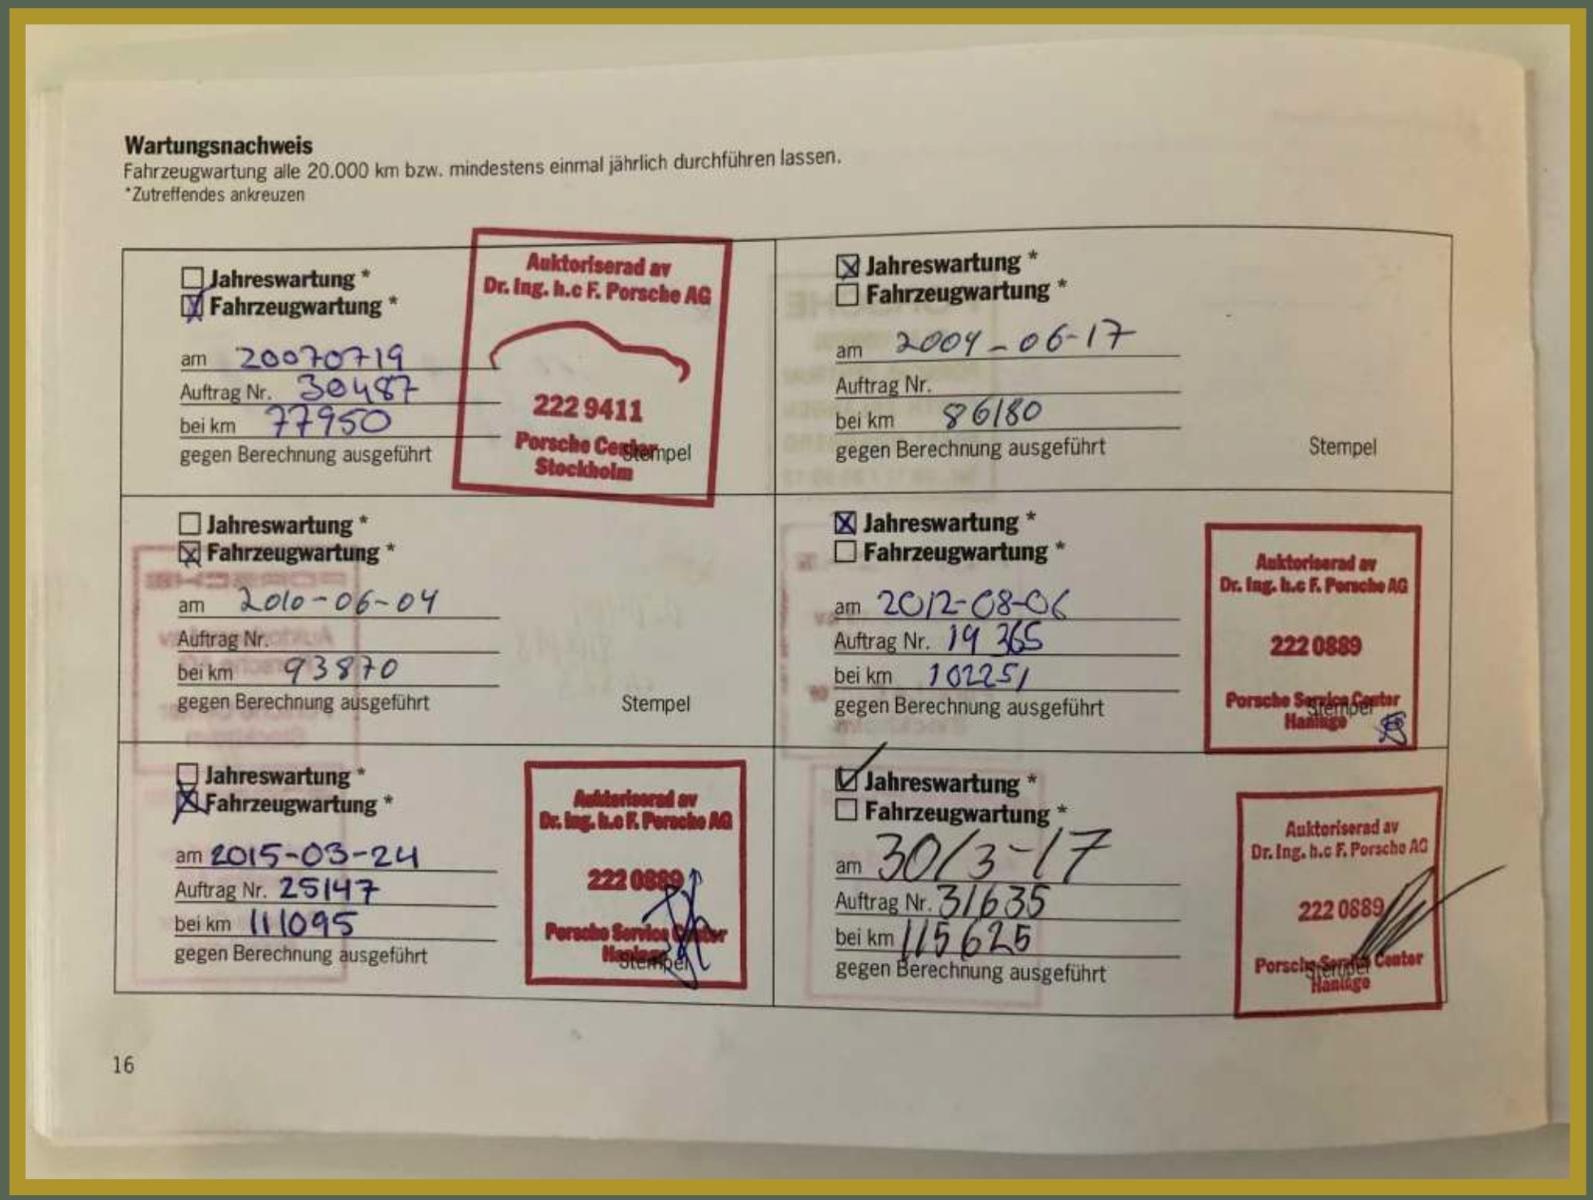 Wartungsnachweis
Fahrzeugwartung alle 20.000 km bzw. mindestens einmal jährlich durchführen lassen.
*Zutreffendes ankreuzen
Jahreswartung *
Fahrzeugwartung *
am 20070719
Auftrag Nr. 30487
bei km 77950
gegen Berechnung ausgeführt
Stempel
Auktoriserad av
Dr. Ing. h.c F. Porsche AG
222 9411
Porsche Center
Stockholm
Jahreswartung *
Fahrzeugwartung *
am 2009-06-17
Auftrag Nr.
bei km 86180
gegen Berechnung ausgeführt
Stempel
Jahreswartung *
Fahrzeugwartung *
am 2010-06-04
Auftrag Nr.
bei km 93870
gegen Berechnung ausgeführt
Stempel
Jahreswartung *
Fahrzeugwartung *
am 2012-08-06
Auftrag Nr. 19 365
bei km 102251
gegen Berechnung ausgeführt
Stempel
Auktoriserad av
Dr. Ing. h.c F. Porsche AG
222 0889
Porsche Service Center
Haninge
Jahreswartung *
Fahrzeugwartung *
am 2015-03-24
Auftrag Nr. 25147
bei km 111095
gegen Berechnung ausgeführt
Stempel
Auktoriserad av
Dr. Ing. h.c F. Porsche AG
222 0889
Porsche Service Center
Haninge
Jahreswartung *
Fahrzeugwartung *
am 30/3-17
Auftrag Nr. 31635
bei km 115625
gegen Berechnung ausgeführt
Stempel
Auktoriserad av
Dr. Ing. h.c F. Porsche AG
222 0889
Porsche Service Center
Haninge
16